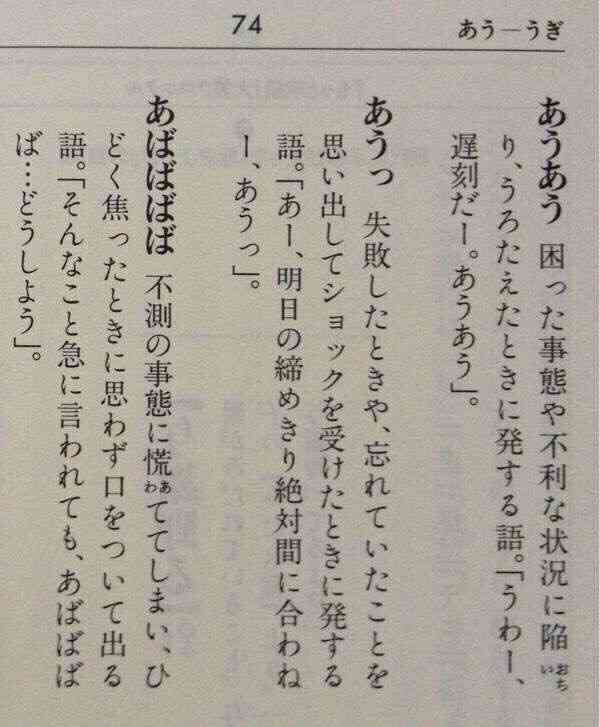 74
あう―うぎ
あうあう 困った事態や不利な状況に陥
り、うろたえたときに発する語。「うわー、
遅刻だー。あうあう」。
あうっ 失敗したときや、忘れていたことを
思い出してショックを受けたときに発する
語。「あー、明日の締めきり絶対間に合わね
ー、あうっ」。
あばばばば 不測の事態に慌ててしまい、ひ
どく焦ったときに思わず口をついて出る
語。「そんなこと急に言われても、あばばば
ば…どうしよう」。